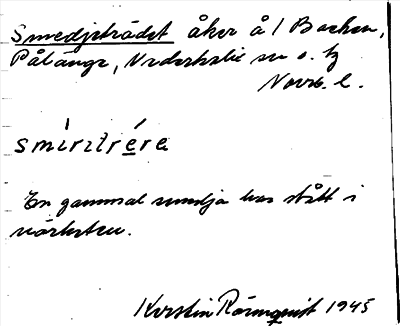 Smedjeträdet åker å 1 Backen,
Pålänge, Nederkalix sn o. tg
Norrb. l.
smìritrére
En gammal smedja har stått i
närheten.
Kerstin Rönnquist 1945